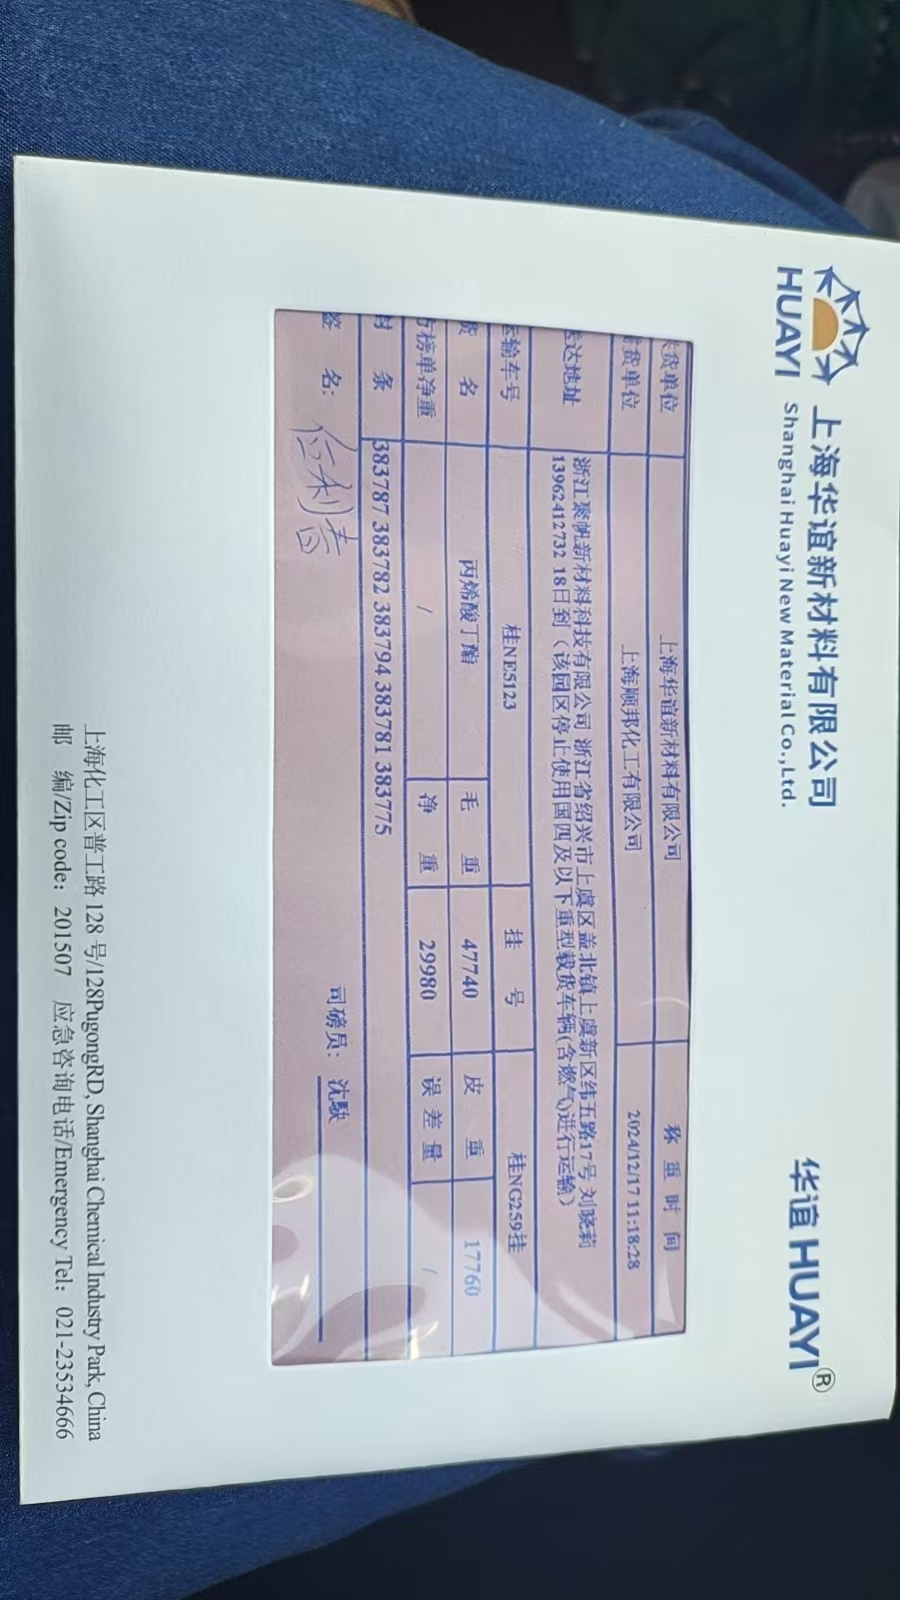 HUAYI
上海华谊新材料有限公司
Shanghai Huayi New Material Co.,Ltd.
华谊 HUAYI®
货单位 上海华谊新材料有限公司 称重时间
货单位 上海顺邦化工有限公司 2024/12/17 11:18:28
送达地址 浙江聚帆新材料科技有限公司 浙江省绍兴市上虞区盖北镇上虞新区纬五路17号 刘晓莉
13962412732 18日到（该园区停止使用国四及以下重型载货车辆(含燃气)进行运输）
运输车号 桂NE5123 挂号 桂NG259挂
货名 丙烯酸丁酯 毛重 47740 皮重 17760
方榜单净重 / 净重 29980 误差量 /
封条 383787 383782 383794 383781 383775
签名: 司磅员: 沈駃
上海化工区普工路 128 号/128PugongRD, Shanghai Chemical Industry Park, China
邮 编/Zip code: 201507 应急咨询电话/Emergency Tel: 021-23534666